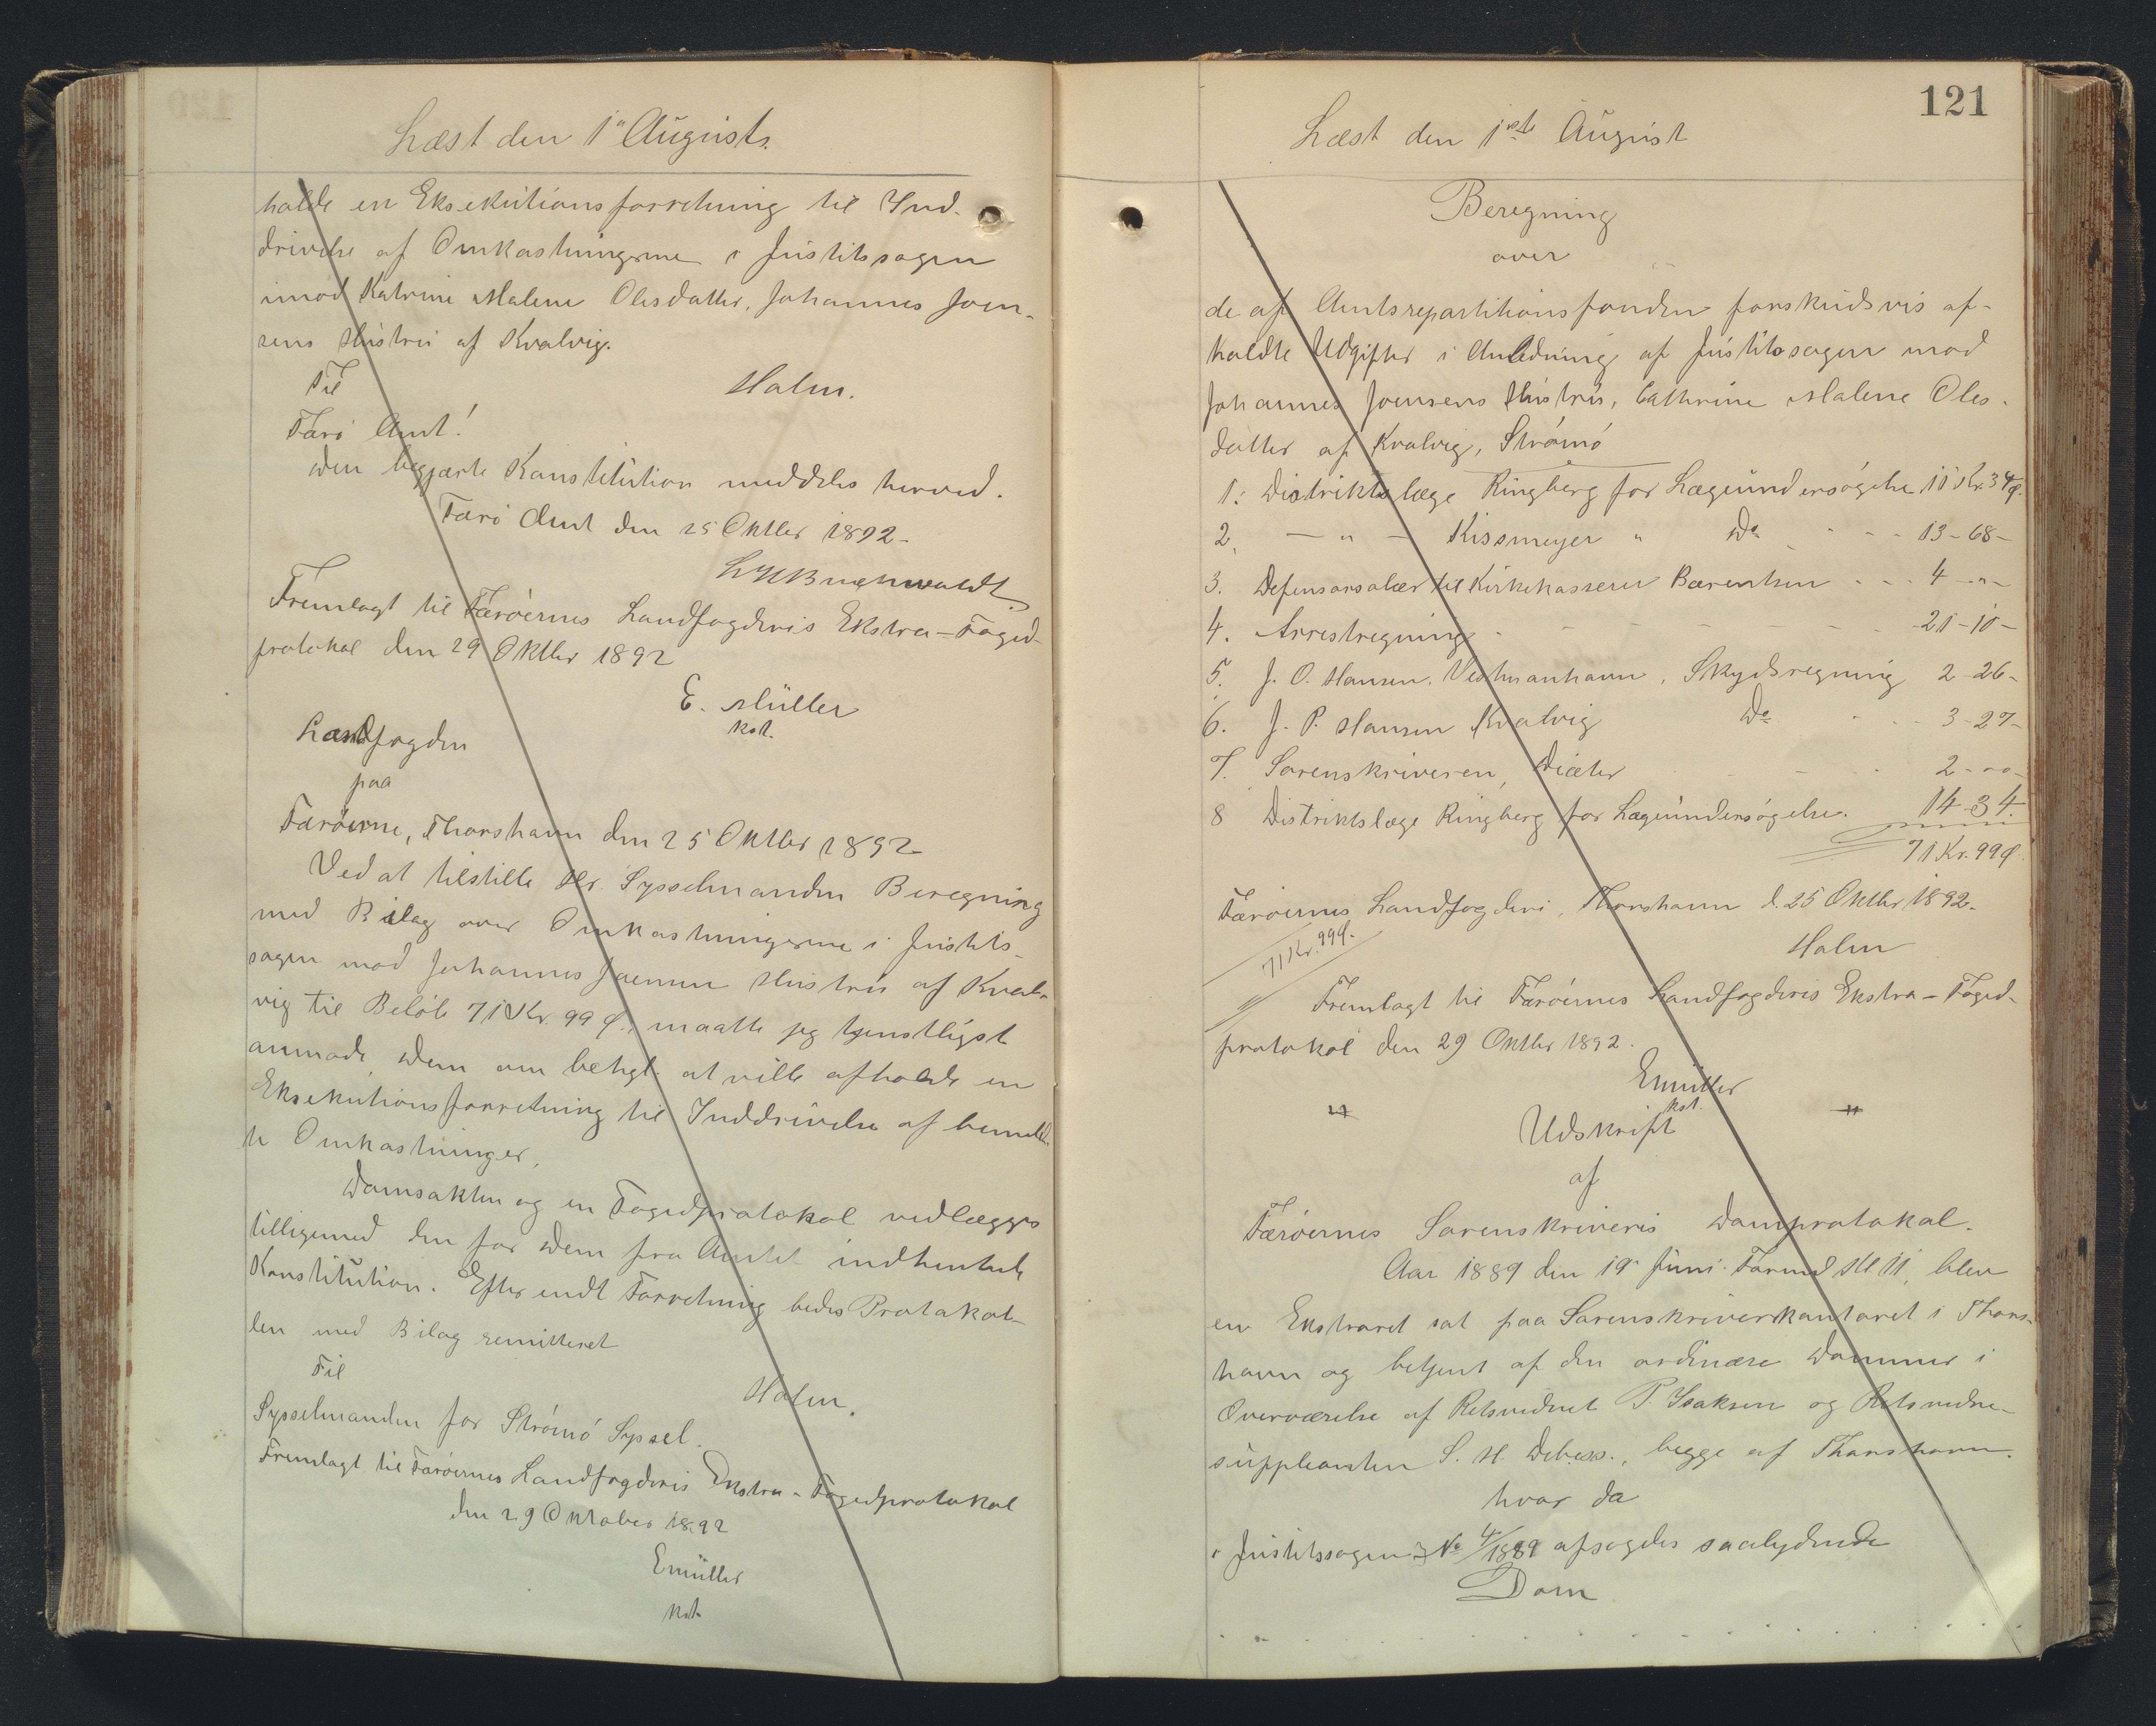 Læst den 1" August.
holde en Eksekutionsforretning til Ind-
drivelse af Omkostningerne i Justitssagen
imod Katrine Malene Olesdatter, Johannes Joen-
sens Hustru af Kvalvig.
Til
Holm.
Færö Amt!
Den begjærte Konstitution meddeles herved.
Færö Amt den 25 Oktbr 1892-
Fremlagt til Færöernes Landfogderis Ekstra-Foged-
protokol den 29 Oktbr 1892
E. Müller
kst.
Landfogden
paa
Færöerne, Thorshavn den 25 Oktbr 1892
Ved at tilstille Hr. Sysselmanden Beregning
med Bilag over Omkostningerne i Justits-
sagen mod Johannes Joensen Hustru af Kval-
vig til Beløb 71 Kr. 99 Ø., maatte jeg tjenstligst
anmode Dem om behgl. at ville afholde en
Eksekutionsforretning til Inddrivelse af bemeld-
te Omkostninger.
Domsakten og en Fogedprotokol vedlægges
tilligemed den for Dem fra Amtet indhentede
Konstitution. Efter endt Forretning bedes Protokol-
len med Bilag remitteret
Til
Holm.
Sysselmanden for Strömö Syssel.
Fremlagt til Færöernes Landfogderis Ekstra-Fogedprotokol
den 29 Oktober 1892
EMüller
kst.
121
Læst den 1ste August
Beregning
over
de af Amtsrepartitionsfonden forskudsvis af-
holdte Udgifter i Anledning af Justitssagen mod
Johannes Joensens Hustru, Cathrine Malene Oles-
datter af Kvalvig, Strömö
1. Distriktslæge Ringberg for Lægeundersögelse 11 Kr. 34 Ø.
2. — " — Kissmeyer " Do - - - 13-68-
3. Defensorsalær til Kirkekasserer Bærentsen - - - 4 - " -
4. Arrestregning - - - - - - - 21-10-
5. J. O. Hansen, Vestmanhavn, Skydsregning 2-26-
6. J. P. Hansen Kvalvig Do - - - 3-27-
7. Sorenskriveren, Diæter - - - 2-00-
8 Distriktslæge Ringberg for Lægeundersögelse. 14-34.
71 Kr. 99 Ø.
Færöernes Landfogderi, Thorshavn d. 25 Oktbr 1892.
71 Kr. 99 Ø.
Holm
Fremlagt til Færöernes Landfogderis Ekstra-Foged-
protokol den 29 Oktbr 1892.
EMüller
kst.
Udskrift
af
Færöernes Sorenskriveris Domprotokol.
Aar 1889 den 19 Juni Formd Kl. 11, blev
en Ekstraret sat paa Sorenskriverkontoret i Thors-
havn og betjent af den ordinære Dommer i
Overværelse af Retsvidnet P. Isaksen og Retsvidne-
suppleanten S. H. Debess., begge af Thorshavn.
hvor da
i Justitssagen No 4/1889 afsagdes saalydende
Dom